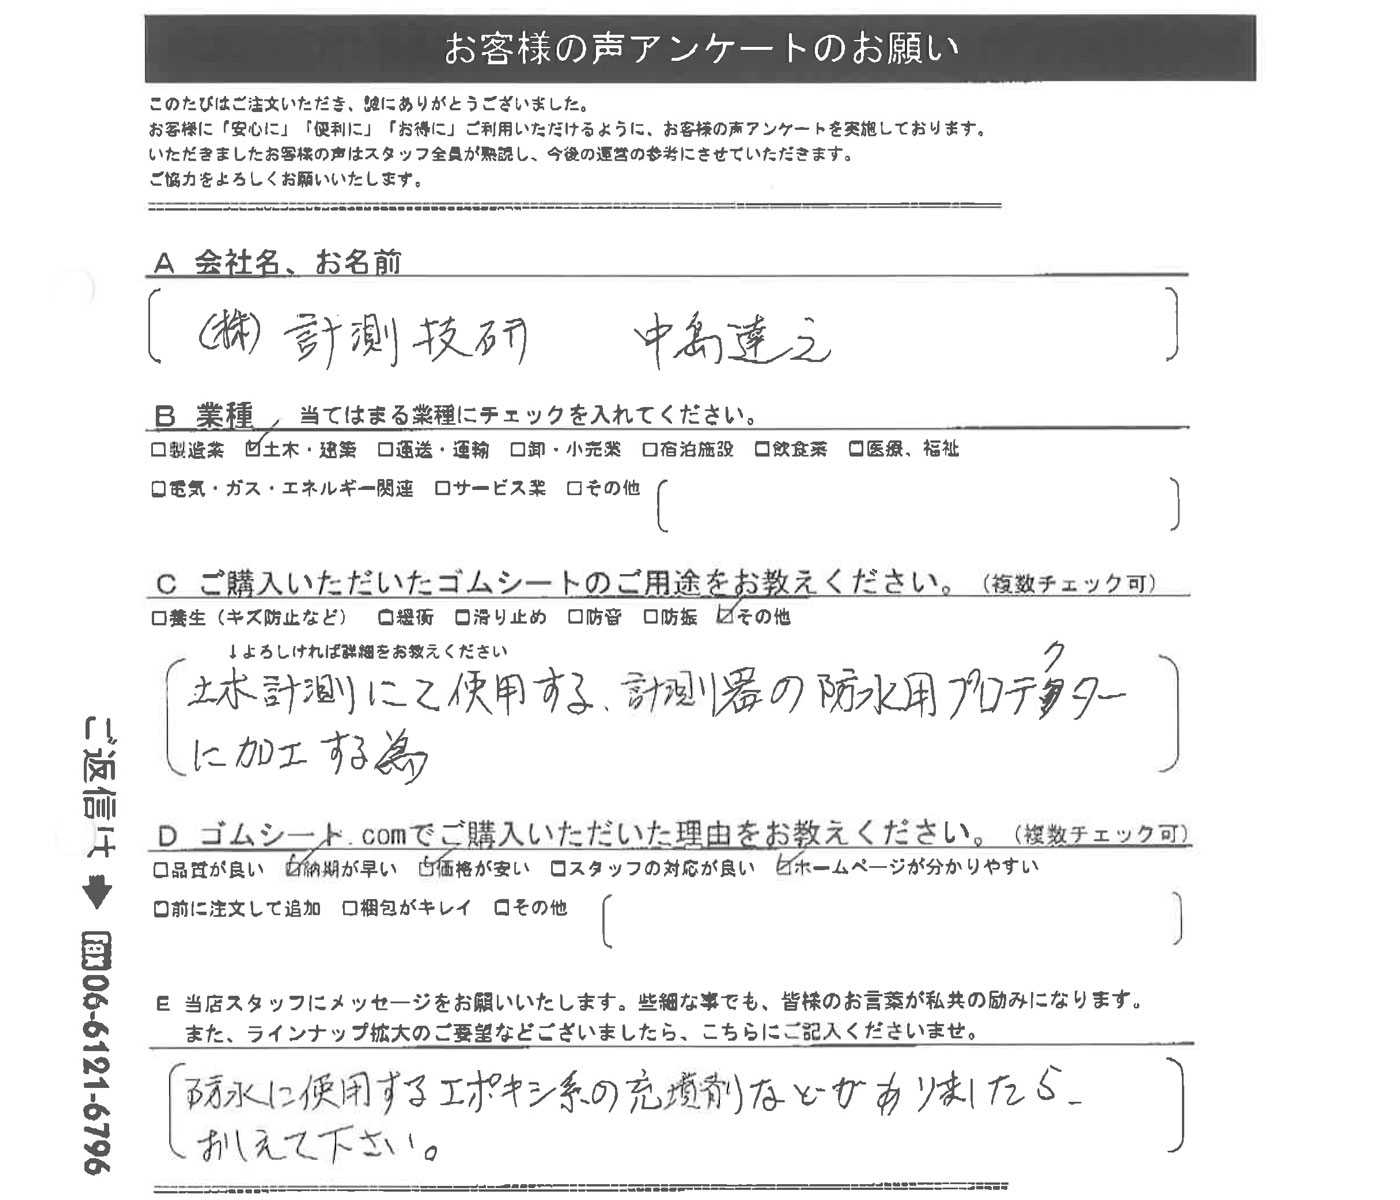 お客様の声アンケートのお願い
このたびはご注文いただき、誠にありがとうございました。
お客様に「安心に」「便利に」「お得に」ご利用いただけるように、お客様の声アンケートを実施しております。
いただきましたお客様の声はスタッフ全員が熟読し、今後の運営の参考にさせていただきます。
ご協力をよろしくお願いいたします。
A 会社名、お名前
(株) 計測技研 中島達之
B 業種 当てはまる業種にチェックを入れてください。
□製造業 ☑土木・建築 □運送・運輸 □卸・小売業 □宿泊施設 □飲食業 □医療、福祉
□電気・ガス・エネルギー関連 □サービス業 □その他
C ご購入いただいたゴムシートのご用途をお教えください。(複数チェック可)
□養生(キズ防止など) □緩衝 □滑り止め □防音 □防振 ☑その他
↓よろしければ詳細をお教えください
土木計測にて使用する、計測器の防水用プロテクター
に加工する為
D ゴムシート.comでご購入いただいた理由をお教えください。(複数チェック可)
□品質が良い ☑納期が早い ☑価格が安い □スタッフの対応が良い ☑ホームページが分かりやすい
□前に注文して追加 □梱包がキレイ □その他
E 当店スタッフにメッセージをお願いいたします。些細な事でも、皆様のお言葉が私共の励みになります。
また、ラインナップ拡大のご要望などございましたら、こちらにご記入くださいませ。
防水に使用するエポキシ系の充填剤などがありましたら
おしえて下さい。
ご返信は➡ FAX06-6121-6796